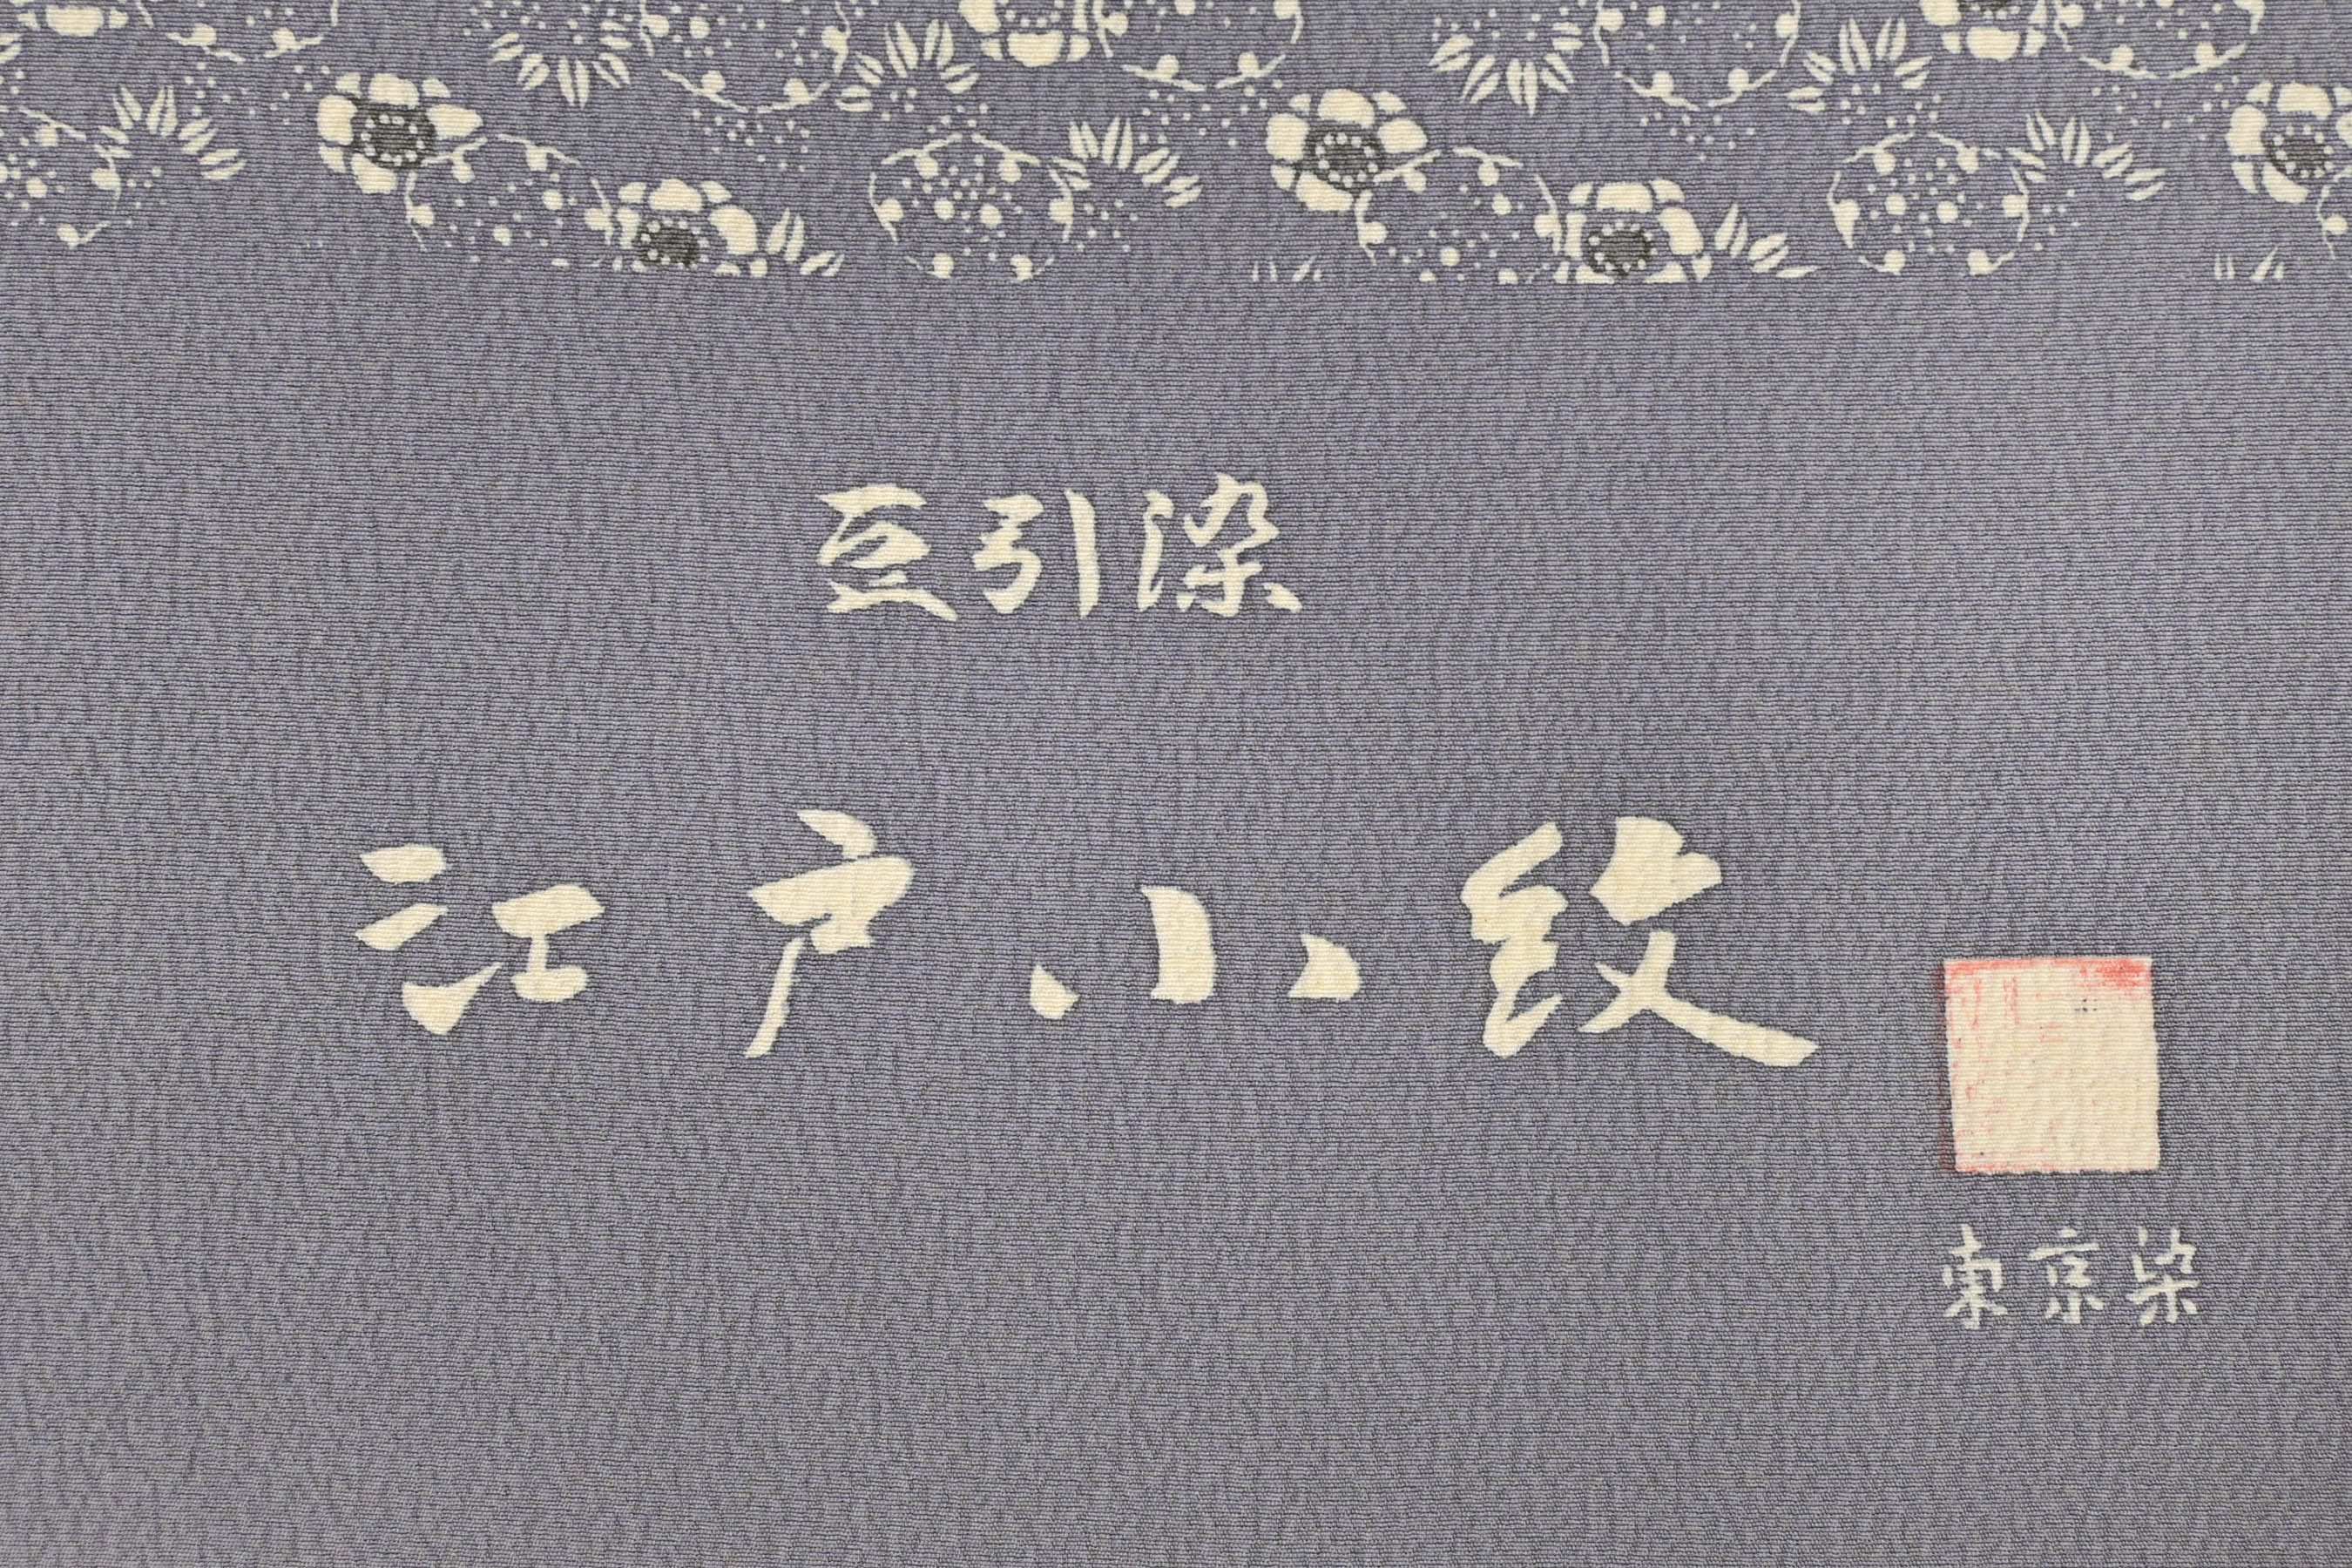 豆引染
江戸小紋
東京染